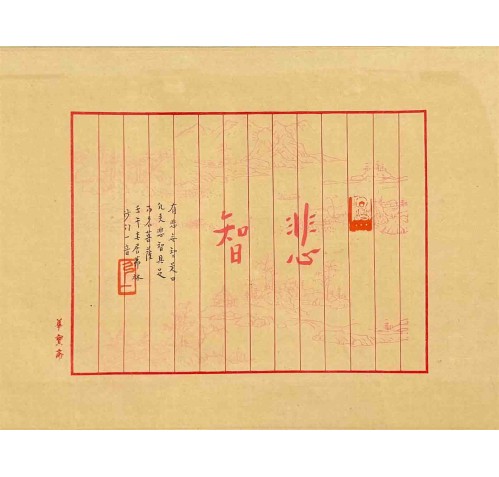 悲
智
有悲無智是曰
凡夫悲智具足
乃名菩薩
壬午 居 林
沙門一音
華寶斋